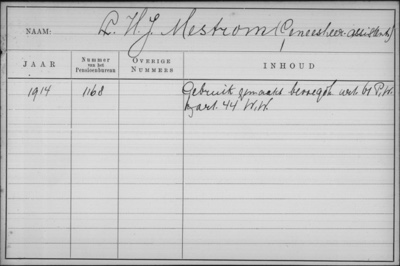 NAAM: L. H. J. Mestrom (Geneesheer-assistent)
JAAR
Nummer van het Pensioenbureau
OVERIGE NUMMERS
INHOUD
1914 1168 Gebruik gemaakt bevoegdh. art. 61 P.W.
art. 44 W.W.